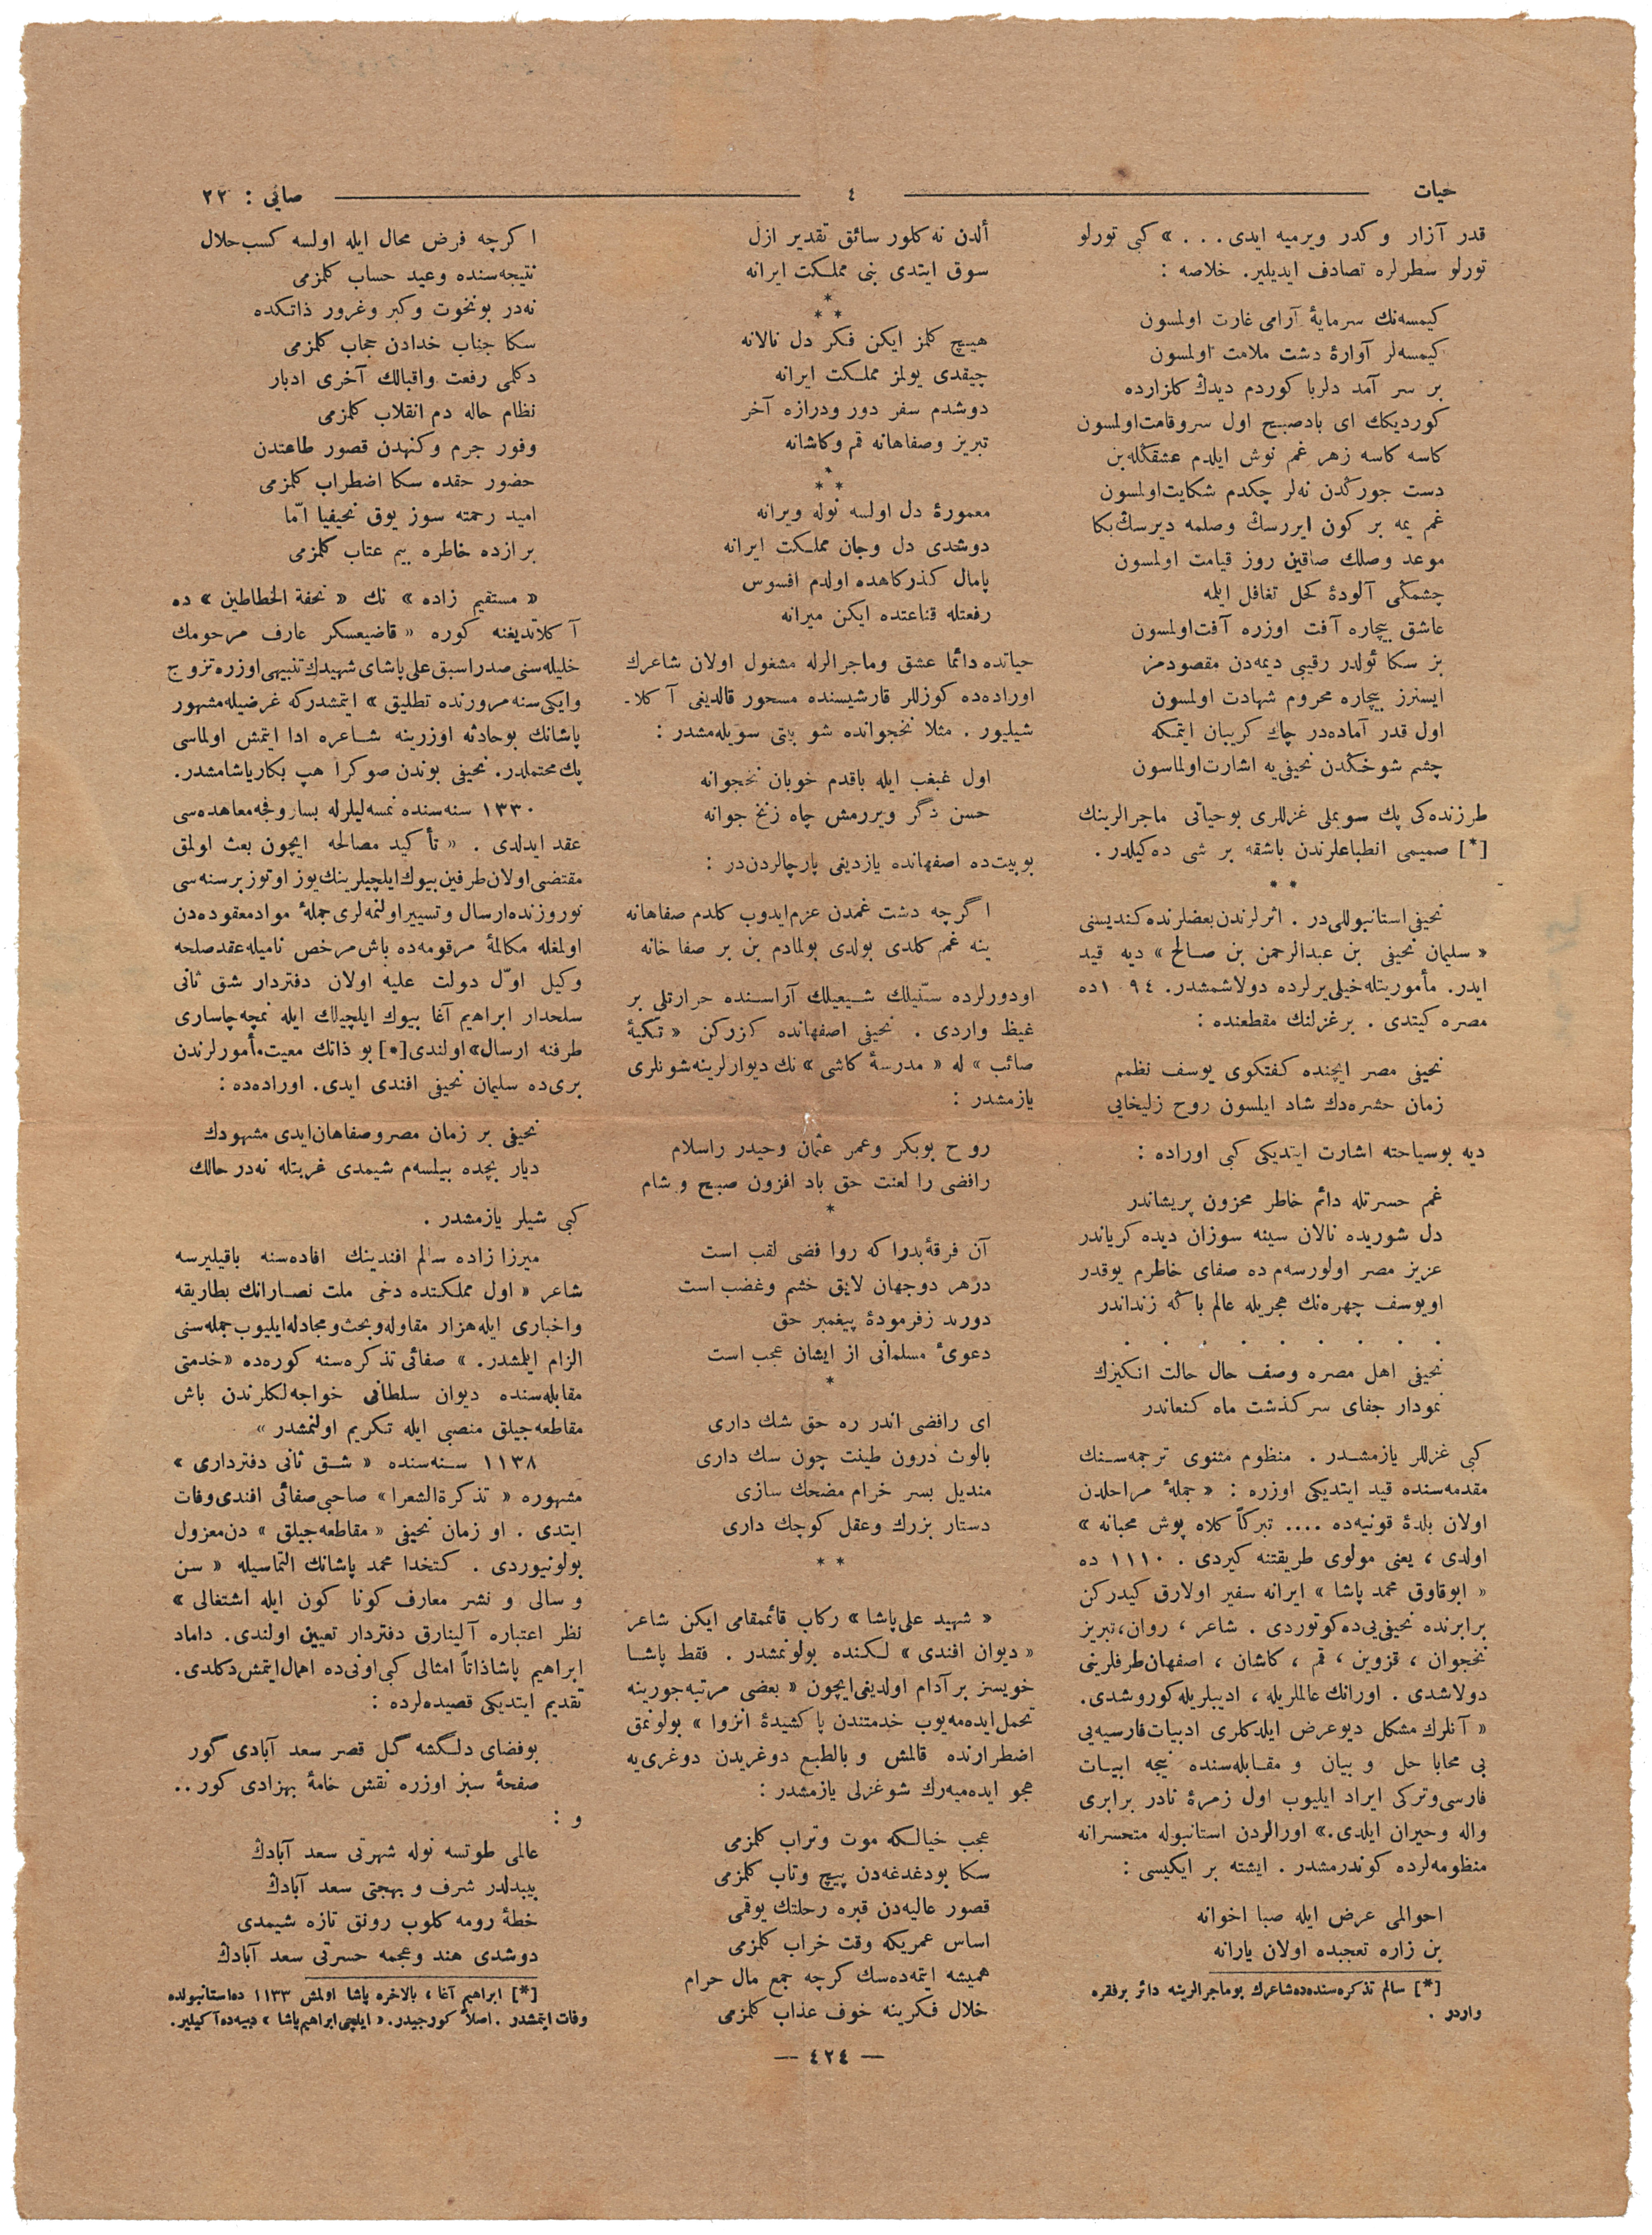 حيات
٤
صايی : ٢٢
قدر آزار و كدر ويرميه ايدی . . . » كبی تورلو
تورلو سطرلره تصادف ايديلير. خلاصه :
كيمسه‌نك سرمايۀ آرامی غارت اولمسون
كيمسه‌لر آوارۀ دشت ملامت اولمسون
بر سر آمد دلربا كوردم ديدڭ كلزارده
كورديكك ای بادصبح اول سروقامت‌اولمسون
كاسه كاسه زهر غم نوش ايلدم عشقڭله‌بن
دست جورڭدن نه‌لر چكدم شكايت‌اولمسون
غم يمه بر كون ايررسڭ وصلمه ديرسڭ‌بكا
موعد وصلك صاقين روز قيامت اولمسون
چشمڭی آلودۀ كحل تغافل ايلمه
عاشق بيچاره آفت اوزره آفت‌اولمسون
بز سكا ئولدر رقيبی ديمه‌دن مقصودمز
ايسترز بيچاره محروم شهادت اولمسون
اول قدر آماده‌در چاك كريبان ايتمكه
چشم شوخڭدن نحيفی‌يه اشارت‌اولماسون
طرزنده‌كی پك سويملی غزللری بوحياتی ماجرالرينك
[*] صميمی انطباعلرندن باشقه بر شی ده‌كيلدر .
* *
نحيفی‌استانبوللی‌در . اثرلرندن‌بعضلرنده‌كنديسنی
« سليمان نحيفی بن عبدالرحمن بن صــالح » ديه قيد
ايدر. مأموريتله‌خيلی‌يرلرده دولاشمشدر. ١٠٩٤ده
مصره كيتدی . برغزلنك مقطعنده :
نحيفی مصر ايچنده كفتكوی يوسف نظمم
زمان حشره‌دك شاد ايلسون روح زليخايی
ديه بوسياحته اشارت ايتديكی كبی اوراده :
غم حسرتله دائم خاطر محزون پريشاندر
دل شوريده نالان سينه سوزان ديده كرياندر
عزيز مصر اولورسه‌م ده صفای خاطرم يوقدر
اويوسف چهره‌نك هجريله عالم باكه زنداندر
. . . . . . . . .
نحيفی اهل مصره وصف حال حالت انكيزك
نمودار جفای سركذشت ماه كنعاندر
كبی غزللر يازمشــدر . منظوم مثنوی ترجمه‌ســنك
مقدمه‌سنده قيد ايتديكی اوزره : « جملۀ مراحلدن
اولان بلدۀ قونيه‌ده .... تبركاً كلاه پوش محبانه »
اولدی ، يعنی مولوی طريقتنه كيردی . ١١١٠ ده
« ابوقاوق محمد پاشا » ايرانه سفير اولارق كيدركن
برابرنده نحيفی‌يی‌ده‌كوتوردی . شاعر ، روان،تبريز
نخجوان ، قزوين ، قم ، كاشان ، اصفهان‌طرفلرينی
دولاشدی . اورانك عالملريله ، اديبلريله‌كوروشدی.
« آنلرك مشكل ديوعرض ايلدكلری ادبيات‌فارسيه‌يی
بی محابا حل و بيان و مقــابله‌سنده نيجه ابيــات
فارسی‌وتركی ايراد ايليوب اول زمرۀ نادر برابری
واله وحيران ايلدی.» اورالردن استانبوله متحسرانه
منظومه‌لرده كوندرمشدر . ايشته بر ايكيسی :
احوالمی عرض ايله صبا اخوانه
بن زاره تعجبده اولان يارانه
[*] سالم تذكره‌سنده‌ده‌شاعرك بوماجرالرينه دائر برفقره
واردر .
ألدن نه كلور سائق تقدير ازل
سوق ايتدی بنی مملــكت ايرانه
*
* *
هيچ كلمز ايكن فكر دل نالانه
چيقدی يولمز مملــكت ايرانه
دوشدم سفر دور ودرازه آخر
تبريز وصفاهانه قم وكاشانه
*
* *
معمورۀ دل اولسه نوله ويرانه
دوشدی دل وجان مملــكت ايرانه
پامال كذركاهده اولدم افسوس
رفعتله قناعتده ايكن ميرانه
حياتده دائما عشق وماجرالرله مشغول اولان شاعرك
اوراده‌ده كوزللر قارشيسنده مسحور قالديغی آكلا-
شيليور . مثلا نخجوانده شو بيتی سويله‌مشدر :
اول غبغب ايله باقدم خوبان نخجوانه
حسن دگر ويررمش چاه زنخ جوانه
بوبيت‌ده اصفهانده يازديغی پارچالردن‌در :
اگرچه دشت غمدن عزم‌ايدوب كلدم صفاهانه
ينه غم كلدی بولدی بولمادم بن بر صفا خانه
اودورلرده سنّيلك شــيعيلك آراســنده حرارتلی بر
غيظ واردی . نحيفی اصفهانده كزركن « تكيۀ
صائب » له « مدرسۀ كاشی » نك ديوارلرينه‌شونلری
يازمشدر :
روح بوبكر وعمر عثمان وحيدر راسلام
رافضی را لعنت حق باد افزون صبح و شام
*
آن فرقۀ‌بدرا كه روا فضی لقب است
درهر دوجهان لايق خشم وغضب است
دورند زفرمودۀ پيغمبر حق
دعویٔ مسلمانی از ايشان عجب است
*
ای رافضی اندر ره حق شك داری
بالوث درون طينت چون سك داری
منديل بسر خرام مضحك سازی
دستار بزرك وعقل كوچك داری
* *
« شهيد علی‌پاشا » ركاب قائممقامی ايكن شاعر
« ديوان افندی » لــكنده بولونمشدر . فقط پاشــا
خويسز برآدام اولديغی‌ايچون « بعضی مرتبه‌جورينه
تحمل‌ايده‌مه‌يوب خدمتندن پاكشيدۀ انزوا » بولونمق
اضطرارنده قالمش و بالطبع دوغريدن دوغری‌يه
هجو ايده‌ميه‌رك شوغزلی يازمشدر :
عجب خيالــكه موت وتراب كلمزمی
سكا بودغدغه‌دن پيچ وتاب كلمزمی
قصور عاليه‌دن قبره رحلتك يوقمی
اساس عمريكه وقت خراب كلمزمی
هميشه ايتمه‌ده‌سك كرچه جمع مال حرام
خلال فكرينه خوف عذاب كلمزمی
اكرچه فرض محال ايله اولسه كسب‌حلال
نتيجه‌سنده وعيد حساب كلمزمی
نه‌در بونخوت وكبر وغرور ذاتكده
سكا جناب خدادن حجاب كلمزمی
دكلمی رفعت واقبالك آخری ادبار
نظام حاله دم انقلاب كلمزمی
وفور جرم وكنهدن قصور طاعتدن
حضور حقده سكا اضطراب كلمزمی
اميد رحمته سوز يوق نحيفيا امّا
برازده خاطره بيم عتاب كلمزمی
« مستقيم زاده » نك « تحفة الخطاطين » ده
آكلاتديغنه كوره « قاضيعسكر عارف مرحومك
خليله‌سنی‌صدراسبق‌علی‌پاشای‌شهيدك‌تنبيهی‌اوزره‌تزوج
وايكی‌سنه‌مرورنده تطليق » ايتمشدركه غرضيله‌مشهور
پاشانك بوحادثه اوزرينه شــاعره ادا ايتمش اولماسی
پك‌محتملدر. نحيفی بوندن صوكرا هپ بكارياشامشدر.
١٣٣٠ سنه‌سنده نمسه‌ليلرله پساروفجه‌معاهده‌سی
عقد ايدلدی . « تأكيد مصالحه ايچون بعث اولمق
مقتضی‌اولان‌طرفين‌بيوك‌ايلچيلرينك‌يوز اوتوزبرسنه‌سی
نوروزنده‌ارسال وتسييراولنمه‌لری‌جملۀ موادمعقوده‌دن
اولمغله مكالمۀ مرقومه‌ده باش‌مرخص ناميله‌عقدصلحه
وكيل اوّل دولت عليه اولان دفتردار شق ثانی
سلحدار ابراهيم آغا بيوك ايلچيلك ايله نمچه‌چاساری
طرفنه ارسال» اولندی[*] بو ذاتك معيت‌مأمورلرندن
بری‌ده سليمان نحيفی افندی ايدی. اوراده‌ده :
نحيفی بر زمان مصروصفاهان‌ايدی مشهودك
ديار بچده بيلسه‌م شيمدی غربتله نه‌در حالك
كبی شيلر يازمشدر .
ميرزا زاده سالم افندينك افاده‌سنه باقيليرسه
شاعر « اول مملكتده دخی ملت نصــارانك بطاريقه
واخباری ايله‌هزار مقاوله‌وبحث‌ومجادله‌ايليوب‌جمله‌سنی
الزام ايلمشدر. » صفائی تذكره‌سنه كوره‌ده «خدمتی
مقابله‌سنده ديوان سلطانی خواجه‌لكلرندن باش
مقاطعه‌جيلق منصبی ايله تكريم اولنمشدر »
١١٣٨ ســنه‌سنده « شــق ثانی دفترداری »
مشهوره « تذكرةالشعرا» صاحبی‌صفائی افندی‌وفات
ايتدی . او زمان نحيفی « مقاطعه‌جيلق » دن‌معزول
بولونيوردی . كتخدا محمد پاشانك التماسيله « سن
و سالی و نشر معارف كونا كون ايله اشتغالی »
نظر اعتباره آلينارق دفتردار تعيين اولندی. داماد
ابراهيم پاشاذاتاً امثالی كبی‌اونی‌ده اهمال‌ايتمش‌دكلدی.
تقديم ايتديكی قصيده‌لرده :
بوفضای دلــگشه گــل قصر سعد آبادی گور
صفحۀ سبز اوزره نقش خامۀ بهزادی كور..
و :
عالمی طوتسه نوله شهرتی سعد آبادڭ
بيبدلدر شرف و بهجتی سعد آبادڭ
خطۀ رومه كلوب رونق تازه شيمدی
دوشدی هند وعجمه حسرتی سعد آبادڭ
[*] ابراهيم آغا ، بالاخره پاشا اولمش ١١٣٣ ده‌استانبولده
وفات‌ايتمشدر . اصلاً كورجيدر. « ايلچی‌ابراهيم‌پاشا » ديیه‌ده‌آكيلير.
— ٤٢٤ —